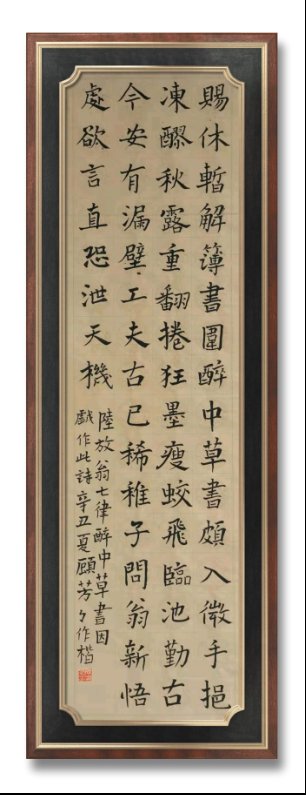 賜休暫解簿書圍醉中草書頗入微手挹
凍醪秋露重翻捲狂墨瘦蛟飛臨池勤古
今安有漏壁工夫古已稀稚子問翁新悟
處欲言直恐泄天機
陸放翁七律醉中草書因
戲作此詩辛丑夏顧芳々作楷